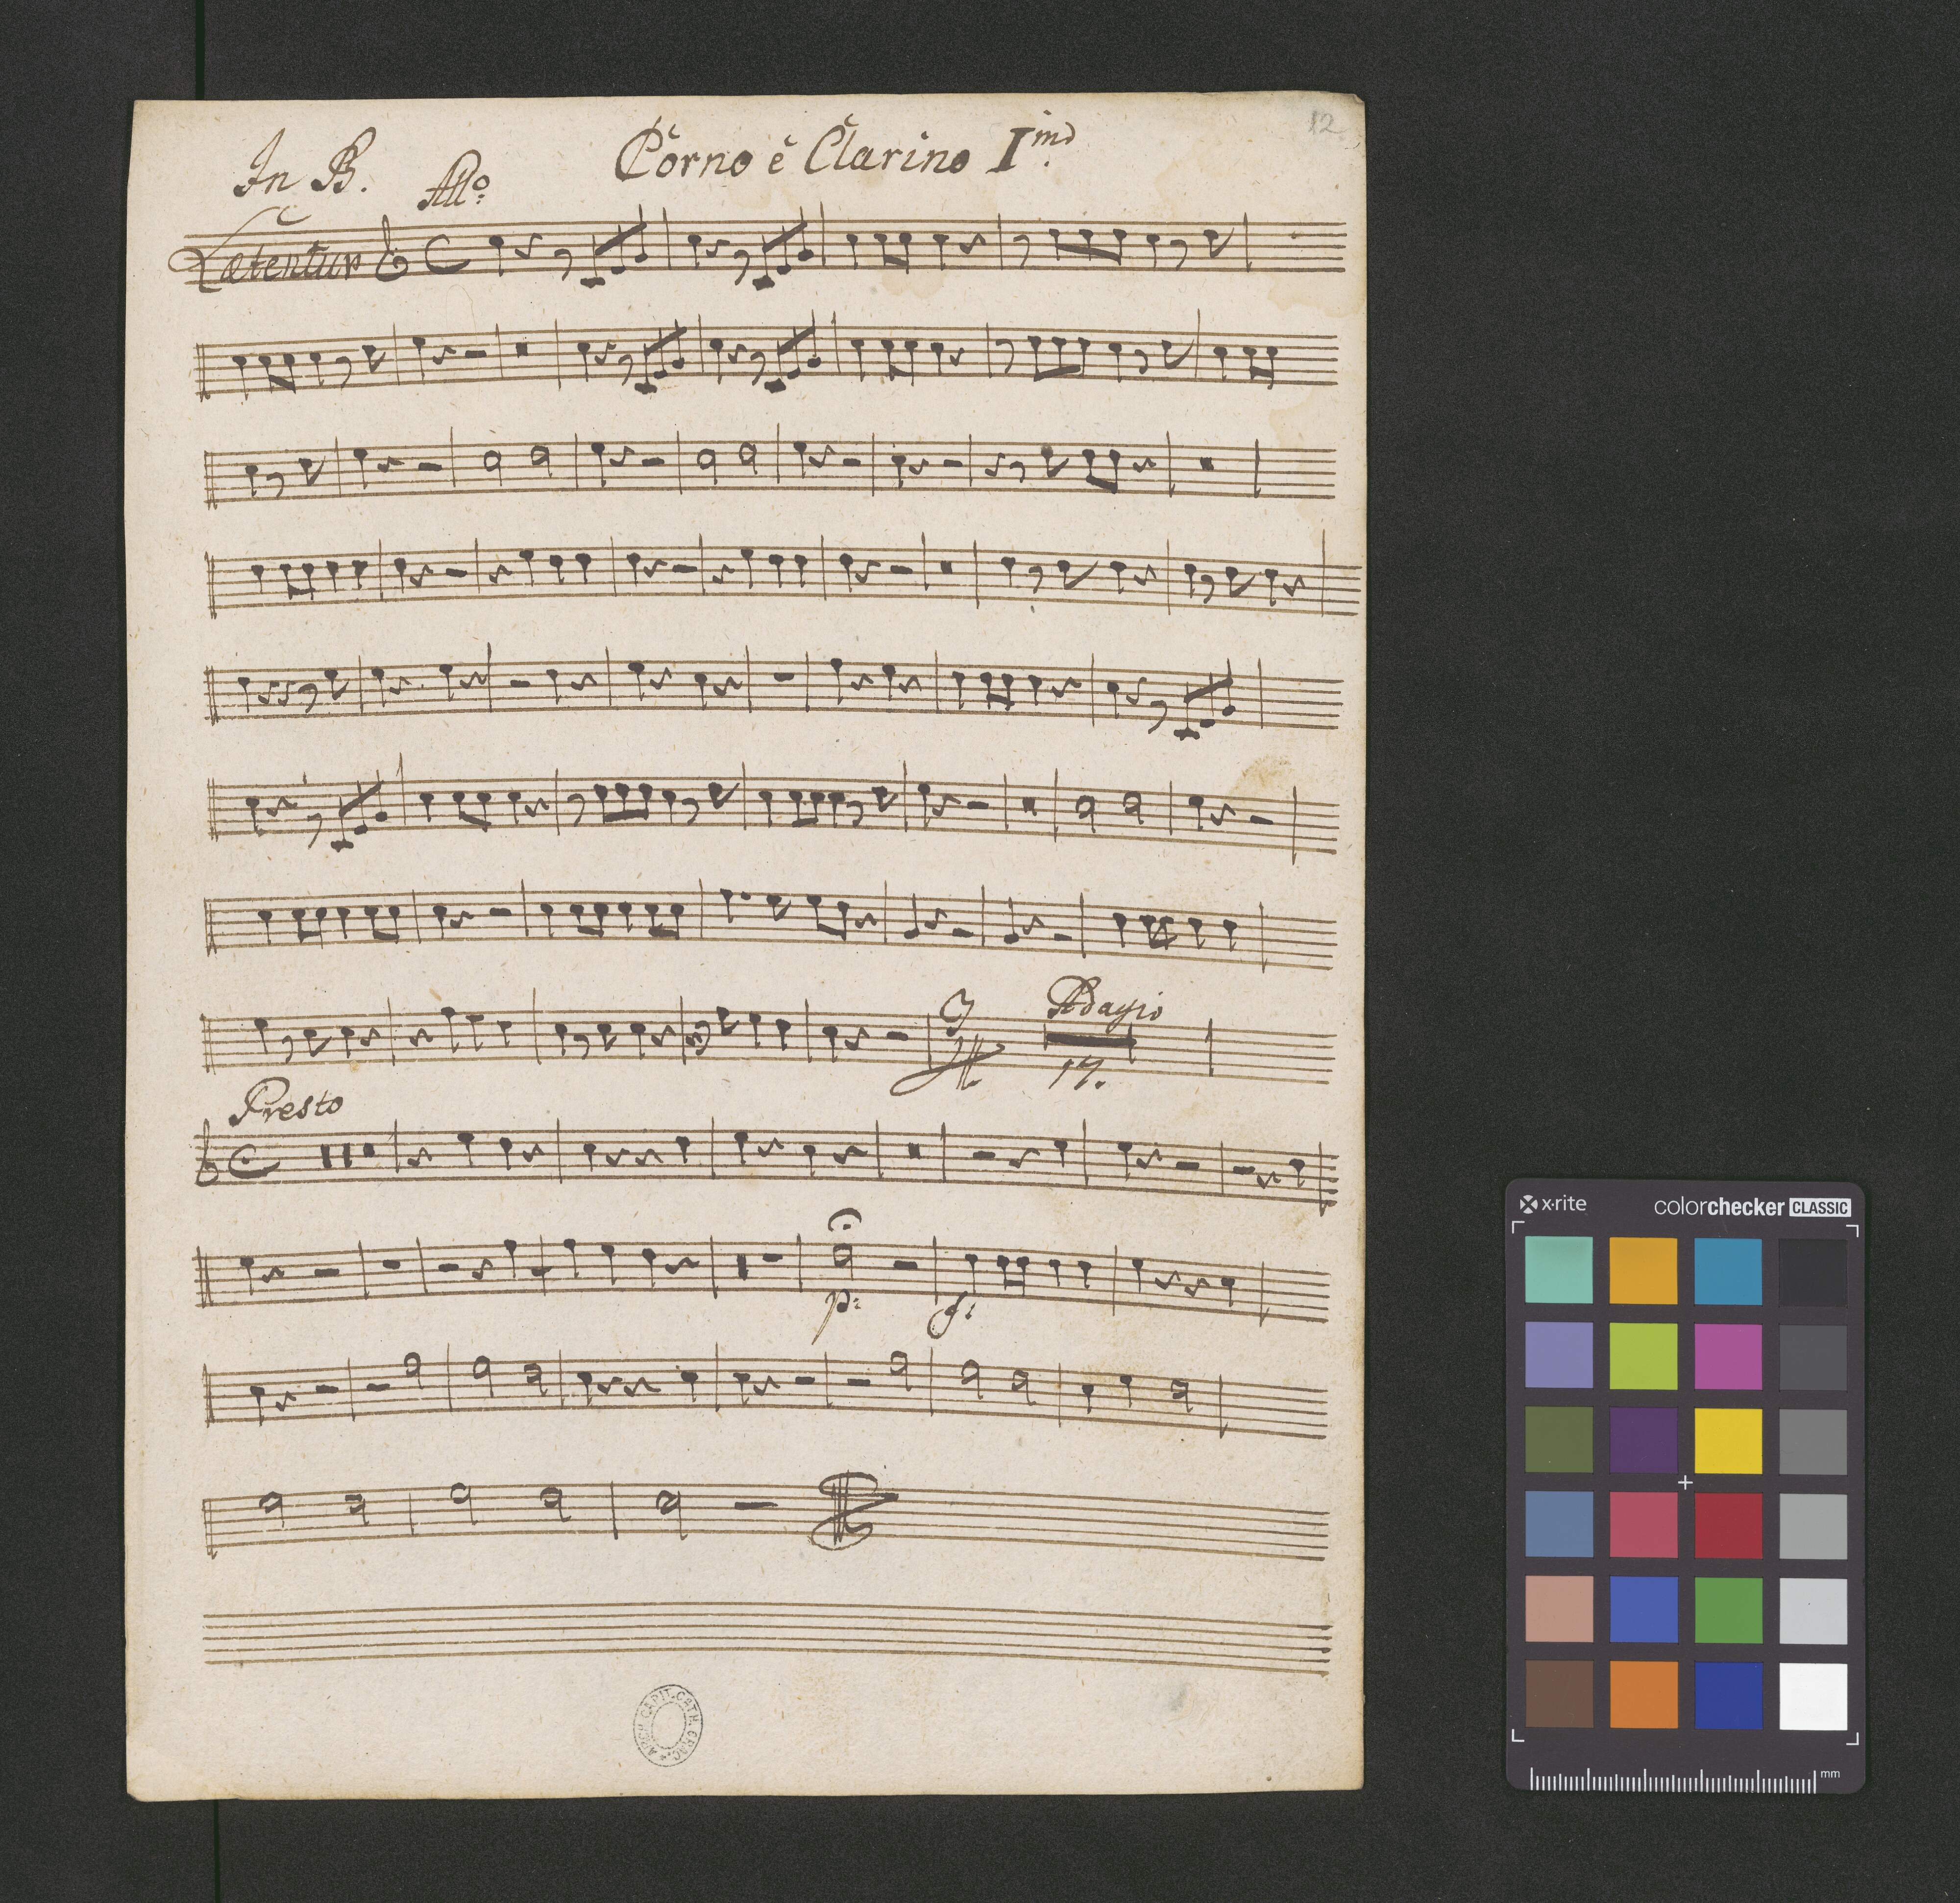 12
In B. Allo: Corno è Clarino Imo.
Lætentur
Adagio
17.
Presto
p: f:
ARCH. CAPIT. CATH. CRAC.
x·rite colorchecker CLASSIC
mm